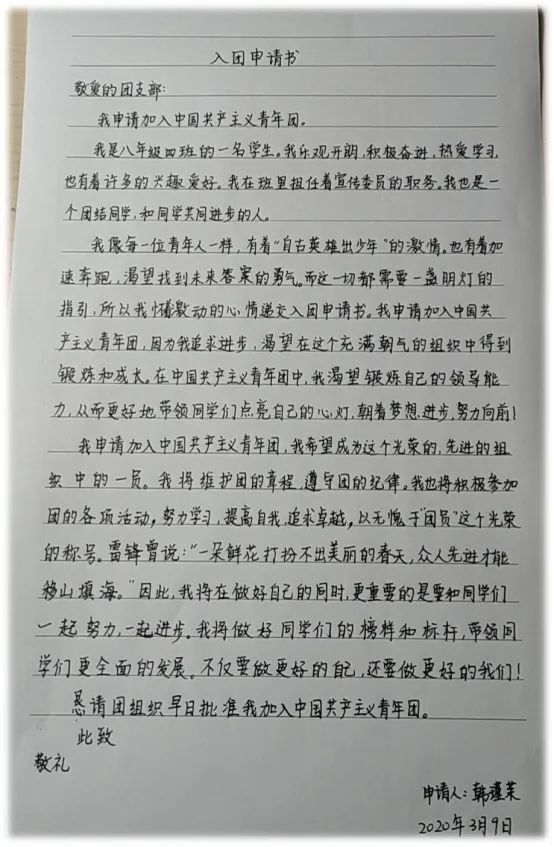 入团申请书
敬爱的团支部:
我申请加入中国共产主义青年团。
我是八年级四班的一名学生。我乐观开朗,积极奋进,热爱学习,
也有着许多的兴趣爱好。我在班里担任着宣传委员的职务。我也是一
个团结同学,和同学共同进步的人。
我像每一位青年人一样,有着“自古英雄出少年”的激情。也有着加
速奔跑,渴望找到未来答案的勇气。而这一切都需要一盏明灯的
指引,所以我怀着激动的心情递交入团申请书。我申请加入中国共
产主义青年团,因为我追求进步,渴望在这个充满朝气的组织中得到
锻炼和成长。在中国共产主义青年团中,我渴望锻炼自己的领导能
力,从而更好地带领同学们点亮自己的心灯,朝着梦想,进步,努力向前!
我申请加入中国共产主义青年团,我希望成为这个光荣的,先进的组
织中的一员。我将维护团的章程,遵守团的纪律。我也将积极参加
团的各项活动,努力学习,提高自我,追求卓越,以无愧于“团员”这个光荣
的称号。雷锋曾说:“一朵鲜花打扮不出美丽的春天,众人先进才能
移山填海。”因此,我将在做好自己的同时,更重要的是要和同学们
一起努力,一起进步。我将做好同学们的榜样和标杆,带领同
学们更全面的发展。不仅要做更好的自己,还要做更好的我们!
恳请团组织早日批准我加入中国共产主义青年团。
此致
敬礼
申请人:韩瑾茉
2020年3月9日